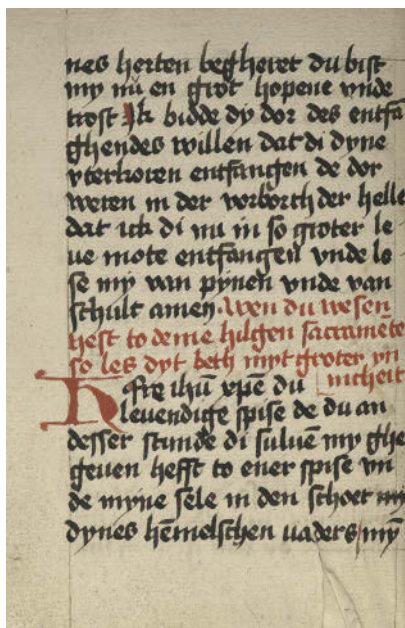 nes herten begheret du bist
my nu en grot hopene vnde
trost Jk bidde dy dor des entfā
ghendes willen dat di dyne
vterkoren entfangen de dor
weren in der vorborch der helle
dat ick di nu in so groter le
ue mote entfangen vnde lo
se my van pynen vnde van
schult amen. Wen du wesen
hest to deme hilgen sacramēte
so les dyt beth myt groter yn
nicheit
ihū xp̄e du
leuendige spise de du an
desser stunde di suluē my ghe
geuen hefft to ener spise vn
de myne sele in den schoet my
dynes hēmelschen uaders my